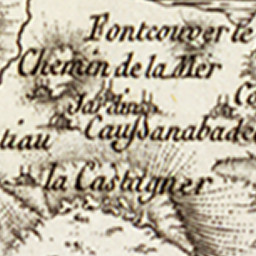 Fontcouverte
Chemin de la Mer
Jardin
Caussanabade
tiau
la Castagner